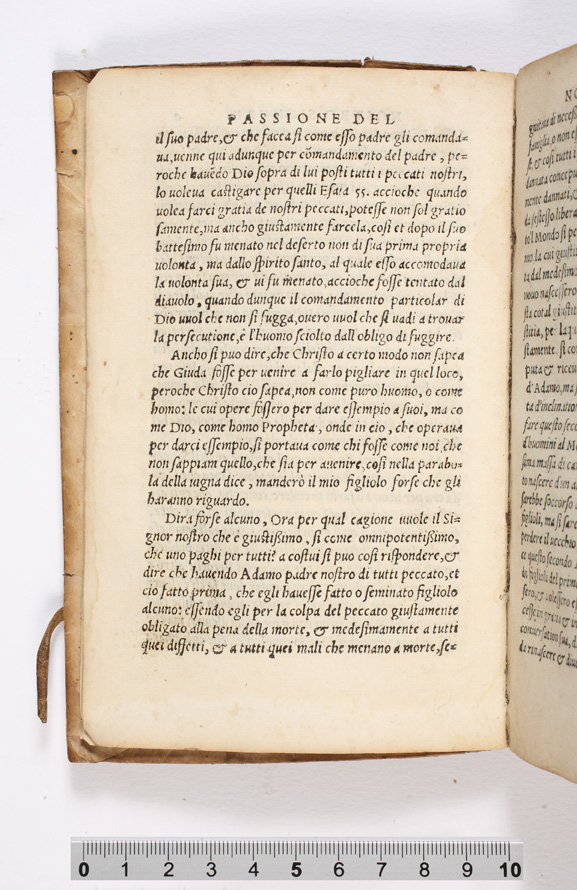 PASSIONE DEL
il suo padre,& che facea sì come esso padre gli comanda=
ua,uenne qui adunque per cōmandamento del padre, pe=
roche hauēdo Dio sopra di lui posti tutti i peccati nostri,
lo uoleua castigare per quelli Esaia 55. accioche quando
uolea farci gratia de nostri peccati,potesse non sol gratio
samente,ma ancho giustamente farcela,così et dopo il suo
battesimo fu menato nel deserto non di sua prima propria
uolonta, ma dallo spirito santo, al quale esso accomodaua
la uolonta sua, & ui fu menato,accioche fosse tentato dal
diauolo, quando dunque il comandamento particolar di
Dio uuol che non si fugga,ouero uuol che si uadi a trouar
la persecutione,è l'huomo sciolto dall obligo di fuggire.
Ancho si puo dire,che Christo a certo modo non sapea
che Giuda fosse per uenire a farlo pigliare in quel loco,
peroche Christo cio sapea,non come puro huomo, o come
homo: le cui opere fossero per dare essempio a suoi, ma co
me Dio, come homo Propheta, onde in cio, che operaua
per darci essempio,si portaua come chi fosse come noi,che
non sappiam quello,che sia per auenire,così nella parabo=
la della uigna dice, manderò il mio figliolo forse che gli
haranno riguardo.
Dira forse alcuno, Ora per qual cagione uuole il Si=
gnor nostro che è giustissimo, sì come omnipotentissimo,
che uno paghi per tutti? a costui si puo così rispondere,&
dire che hauendo Adamo padre nostro di tutti peccato,et
cio fatto prima, che egli hauesse fatto o seminato figliolo
alcuno: essendo egli per la colpa del peccato giustamente
obligato alla pena della morte, & medesimamente a tutti
quei diffetti, & a tutti quei mali che menano a morte,se=
NO
famiglia, o non e
& così tutti i
dannata
mente dannati,&
da sestesso libera
nel Mondo si pe
mo. la cui giustit
ta dal medesimo
stitia,
stamente. si co
d'Adamo, ma
ta d'inclination
fare questo seco
d'huomini al M
sima massa di ca
to nascere d'un a
sarebbe soccorso
figlioli, ma si sare
perdere il uecchio
ce questo secondo
figlioli del prim
da rinascere &
0 1 2 3 4 5 6 7 8 9 10